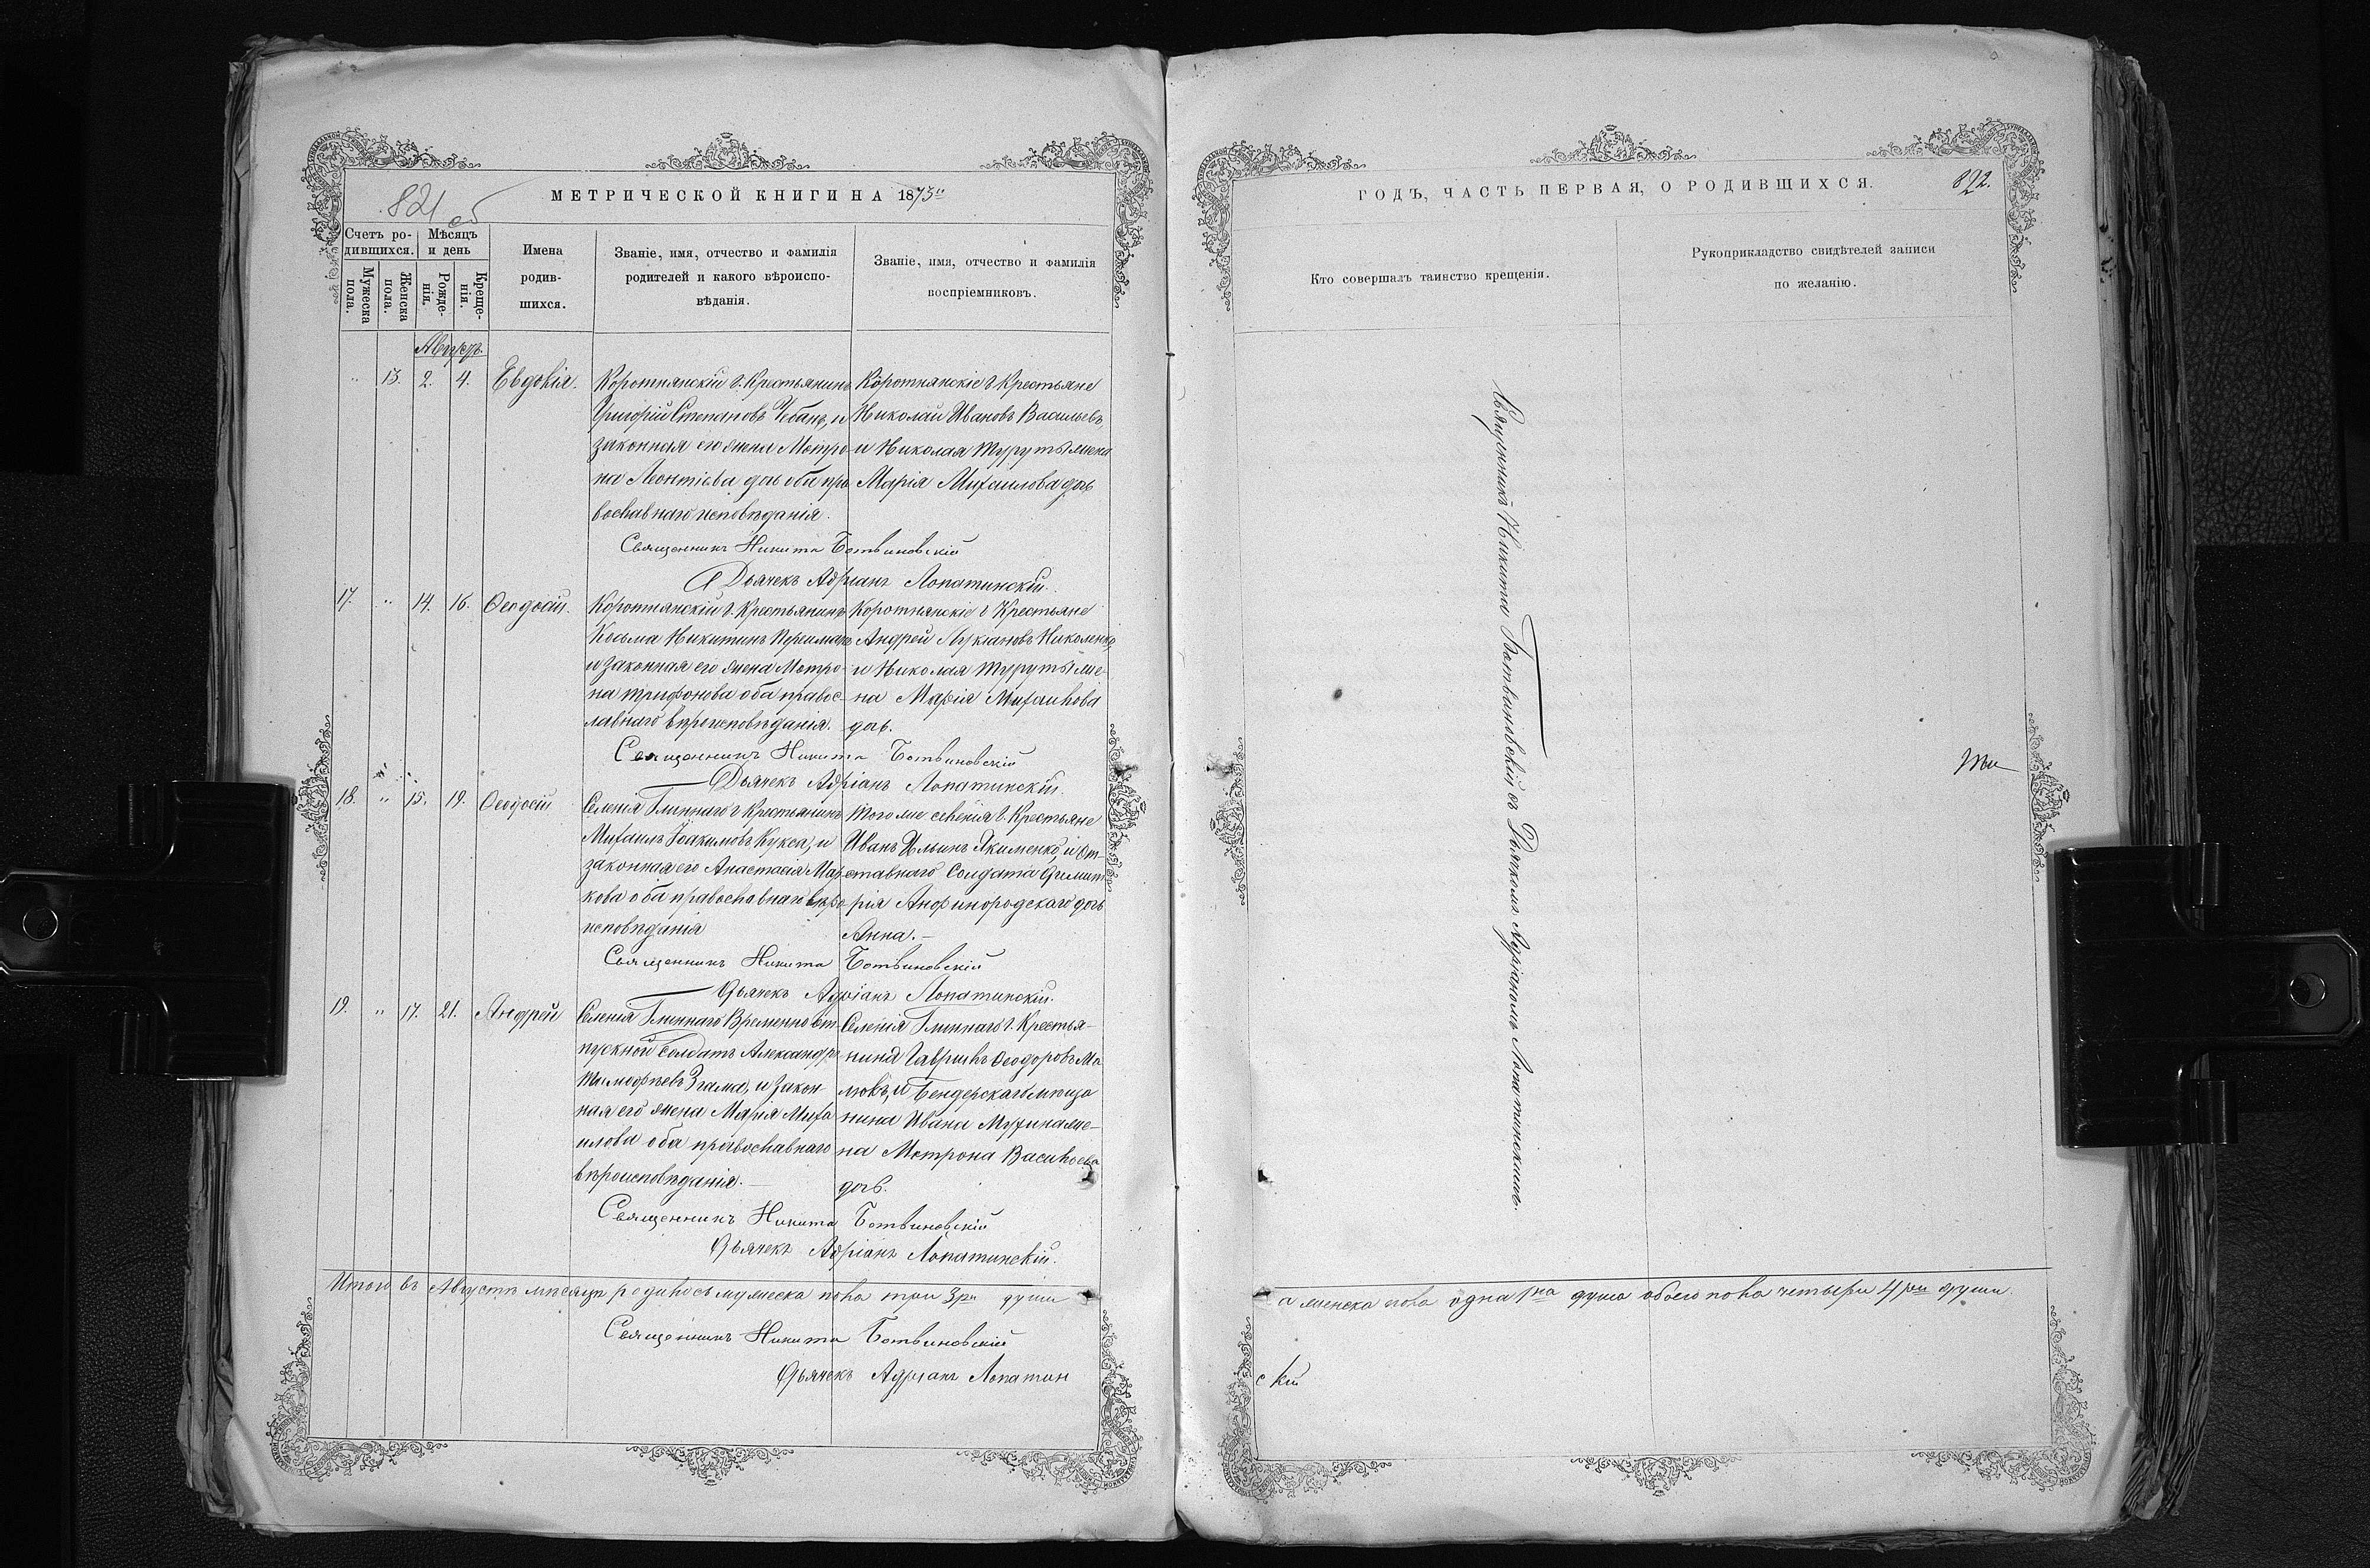 МЕТРИЧЕСКОЙ КНИГИ НА 1873й
821 об
Счетъ ро-
дившихся.
Мѣсяцъ
и день
Мужеска
пола.
Женска
пола.
Рожде-
нія.
Креще-
нія.
Имена
родив-
шихся.
Званіе, имя, отчество и фамилія
родителей и какого вѣроиспо-
вѣданія.
Званіе, имя, отчество и фамилія
воспріемниковъ.
Августъ.
" 13. 2. 4. Евдокія.
Коротнянскій г. Крестьянинъ
Григорій Степановъ Чебанъ, и
законная его жена Мотро
на Леонтіева дочь оба пра
вославнаго исповѣданія.
Коротнянскіе г Крестьяне
Николай Ивановъ Васильевъ,
и Николая Туруты жена
Марія Михаилова дочь
Священникъ Никита Ботвиновскій
Дьячекъ Адріанъ Лопатинскій.
17. " 14. 16. Ѳеодосій.
Коротнянскій г. Крестьянинъ
Косьма Никитинъ
и законная его жена Мотро-
на Трифонова оба правос-
лавнаго вѣроисповѣданія.
Коротнянскіе г Крестьяне
Андрей Лукіановъ Николенко,
и Николая Туруты же-
на Марія Михаилова
дочь.
Священникъ Никита Ботвиновскій
Дьячекъ Адріанъ Лопатинскій.
18. " 15. 19. Ѳеодосій
Селенія Глиннаго г Крестьянинъ
Михаилъ Іоакимовъ Кукса, и
законная его Анастасія Мар
кова оба православнаго вѣро
исповѣданія
Того же селенія г. Крестьяне
Иванъ Ильинъ Якименко, и От-
ставнаго Солдата Димит
рія дочь
Анна.-
Священникъ Никита Ботвиновскій
Дьячекъ Адріанъ Лопатинскій.
19. " 17. 21. Андрей
Селенія Глиннаго Временно от
пускной Солдатъ Александръ
Тимофѣевъ Згама, и закон
ная его жена Марія Миха
илова оба православнаго
вѣроисповѣданія.
Селенія Глиннаго г. Крестья-
нинъ Гавріилъ Ѳеодоровъ Ма
мовъ, и Бендерскаго мѣща
нина Ивана же-
на Мотрона Васильева
дочь.
Священникъ Никита Ботвиновскій
Дьячекъ Адріанъ Лопатинскій.
Итого въ Августѣ мѣсяцѣ родилось мужеска пола три 3ри души
Священникъ Никита Ботвиновскій
Дьячекъ Адріанъ Лопатин
ГОДЪ, ЧАСТЬ ПЕРВАЯ, О РОДИВШИХСЯ.
822.
Кто совершалъ таинство крещенія.
Рукоприкладство свидѣтелей записи
по желанію.
Священникъ Никита Ботвиновскій съ Дьячкомъ Адріаномъ Лопатинскимъ.
а женска пола одна 1на душа обоего пола четыри 4ри души.
скій